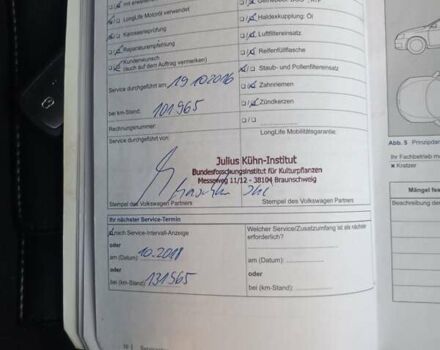 mit erweitertem
LongLife Motoröl verwendet
Karosserieprüfung
Reparaturempfehlung
Kundenwunsch
(auch auf dem Auftrag vermerken)
Haldexkupplung: Öl
Luftfiltereinsatz
Reifenfüllflasche
Staub- und Pollenfiltereinsatz
Zahnriemen
Zündkerzen
Service durchgeführt am: 19.10.2016
bei km-Stand: 101.965
Rechnungsnummer:
LongLife Mobilitätsgarantie:
Service durchgeführt von:
Julius Kühn-Institut
Bundesforschungsinstitut für Kulturpflanzen
Messeweg 11/12 - 38104 Braunschweig
Stempel des Volkswagen Partners
Stempel des Volkswagen Partners
Ihr nächster Service-Termin
nach Service-Intervall-Anzeige
oder
am (Datum): 10.2018
oder
bei (km-Stand): 131965
Welcher Service/Zusatzumfang ist als nächstes erforderlich?
am (Datum):
oder
bei (km-Stand):
Abb. 5 Prinzipdar
Ihr Fachbetrieb m
× Kratzer
Mängel fes
Beschreibung der